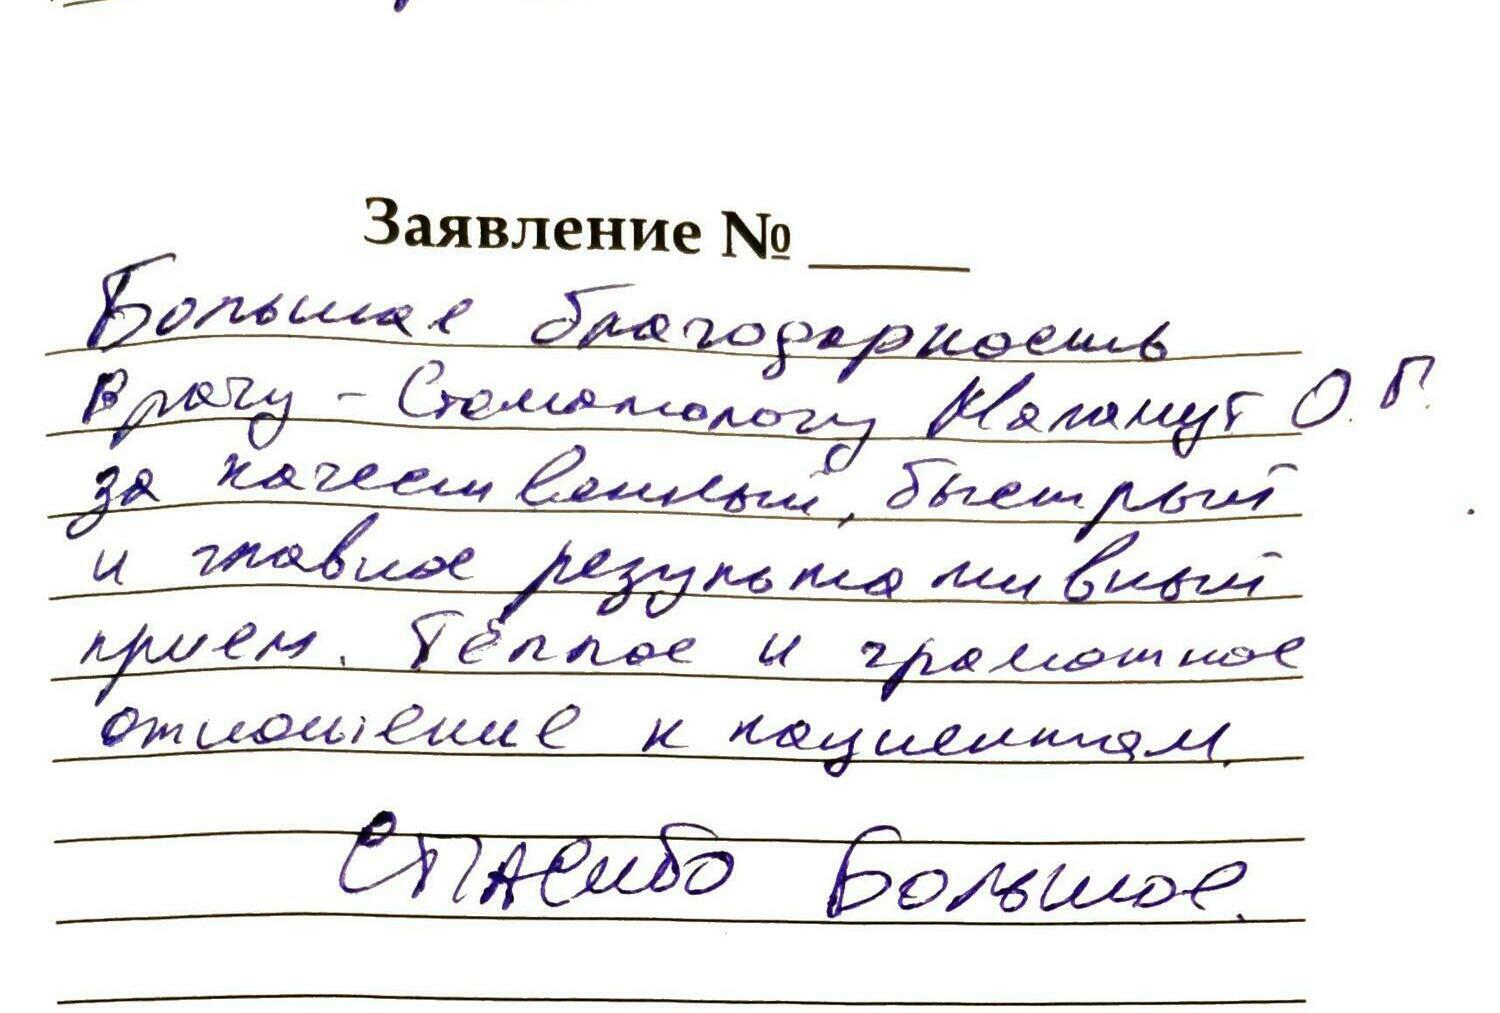 Заявление № ____
Большое благодарность
Врачу - Стоматологу О. Г.
за качественный, быстрый
и главное результативный
прием. Тёплое и грамотное
отношение к пациентам.
Спасибо Большое.